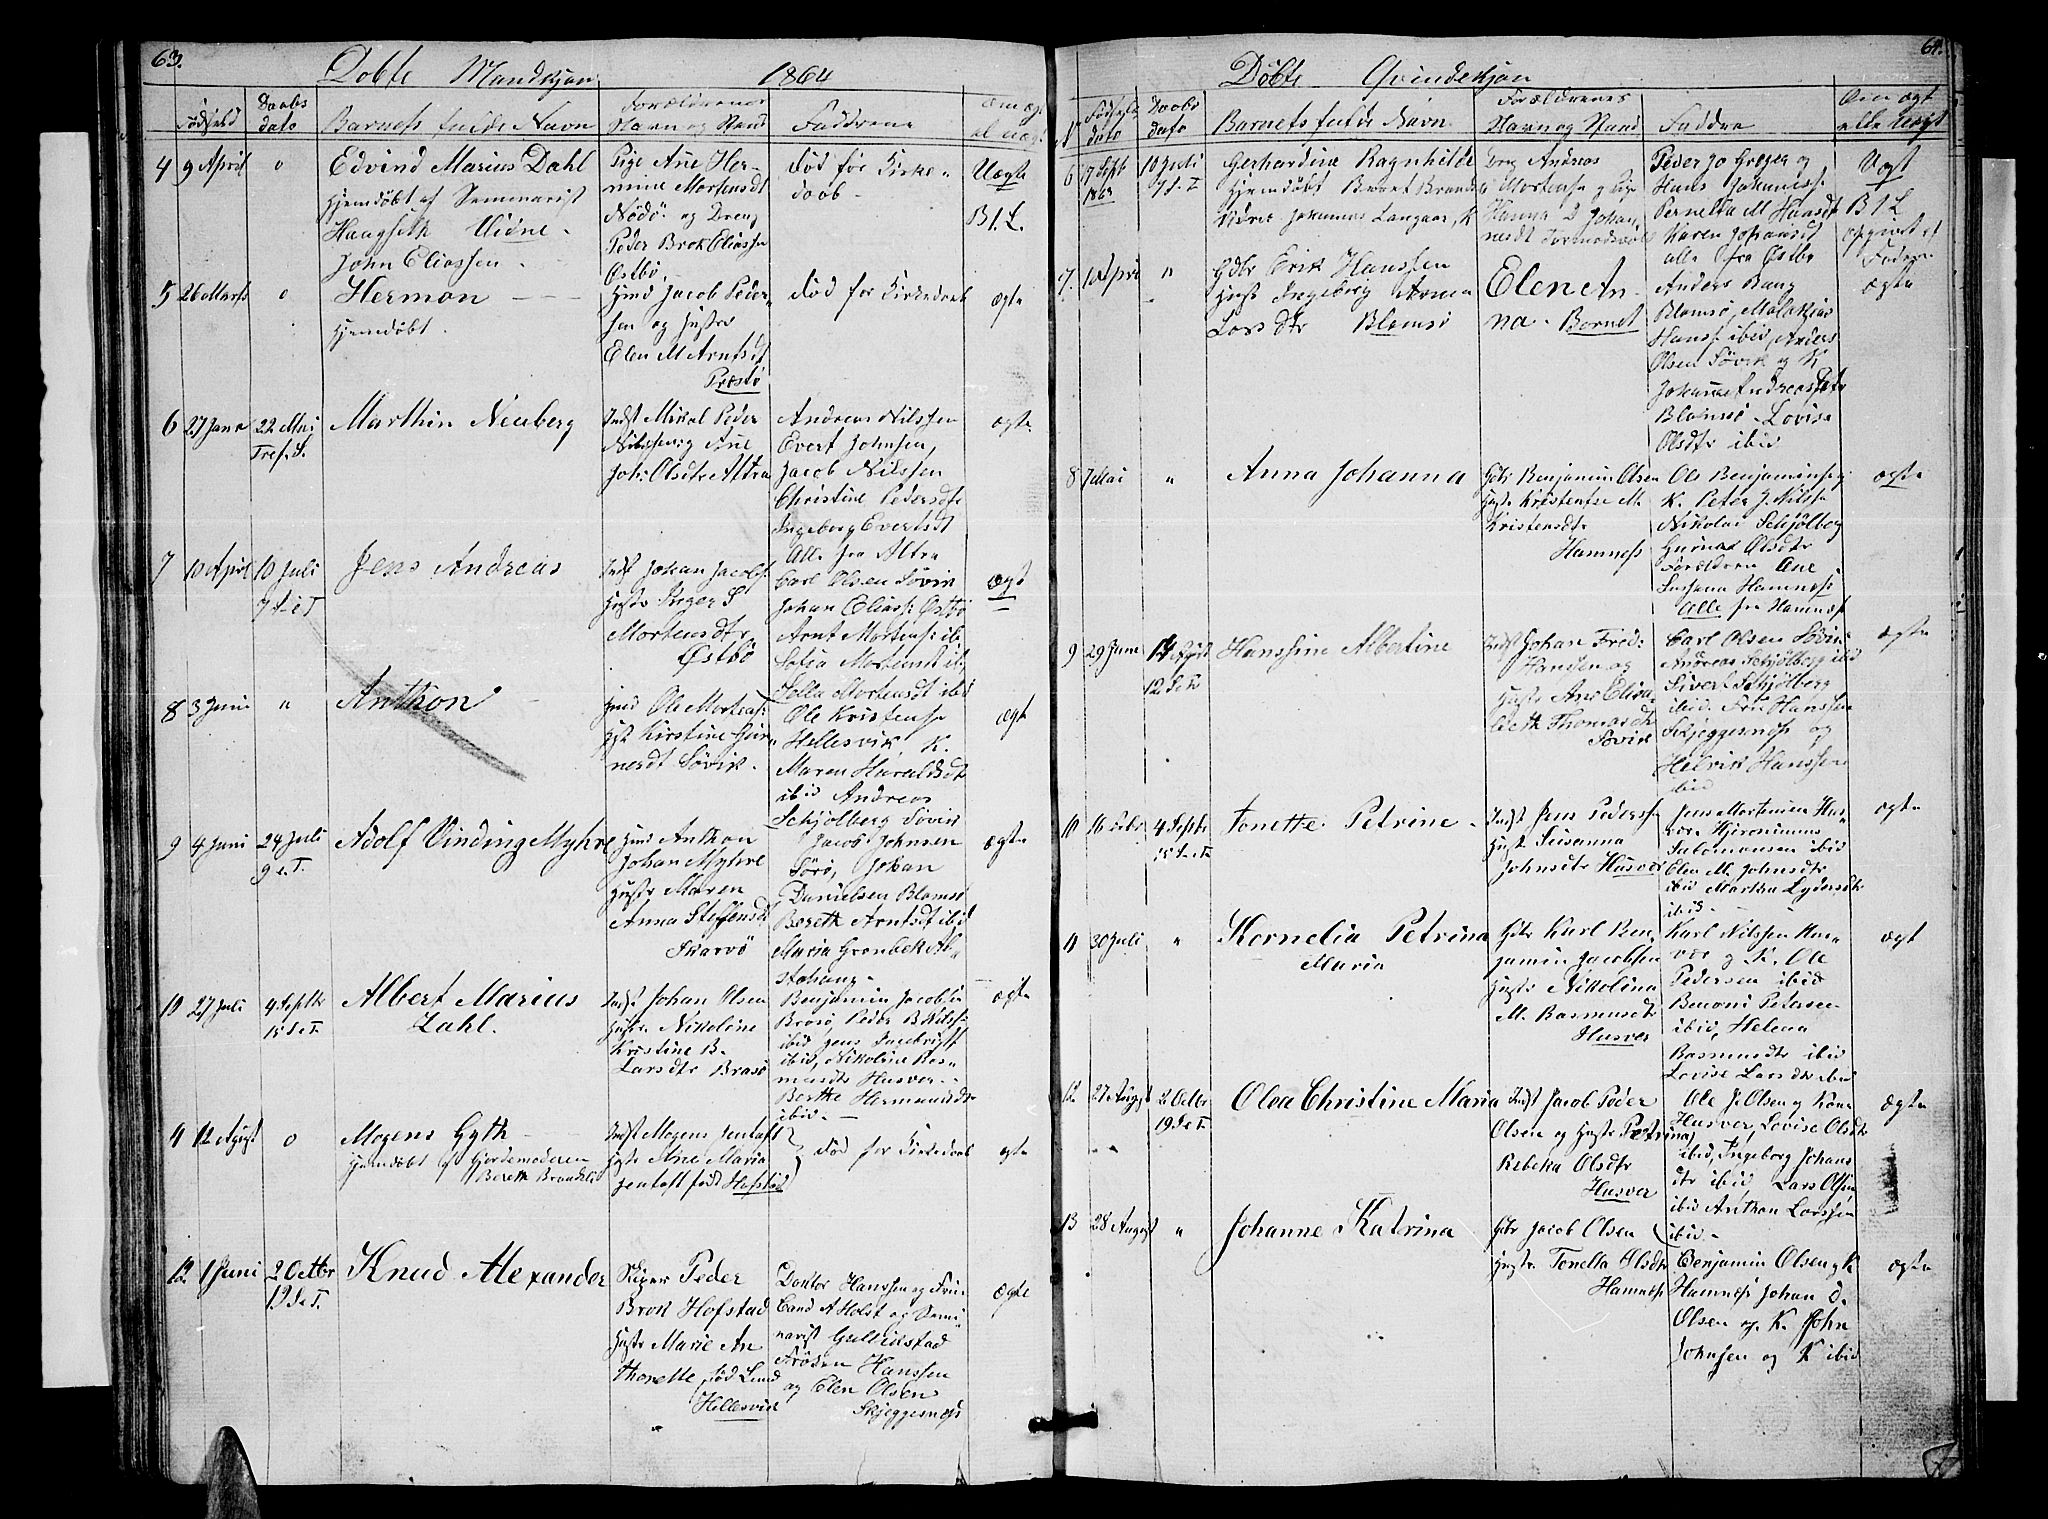 63.
Døbte Mandkjøn 1864
Fødsels d
Daabs dato
Barnets fulde Navn
Forældrenes Navn og Stand
Faddrene
Om ægte el uægt.
4 9 April 0
Edvind Marius Dahl
hjemdøbt af Seminarist
Haugseth Vidne
John Eliassen.
Pige Ane Her-
mine Mortensdt
Nødø og Dreng
Peder Brok Eliassen
Østbø.
død før Kirke-
daab
Uægte
B 1. L.
5 26 Marts 0
Hermon
hjemdøbt.
Jacob Peder-
sen og Hustru
Elen M Arntsdt
Præstø
død før Kirkedaab
ægte
6 27 Janr 22 Mai
Tref. S.
Marthin Neuberg
Indst Mikal Peder
Nilssen og Ane
Joh: Olsdtr Altra
Andreas Nilssen
Evert Johnsen,
Jacob Nilssen
Christine Pedersdtr
Ingeborg Evertsdt
Alle fra Altra
ægte
7 10 April 10 Juli
7 S. e T
Jens Andreas
Indst Johan Jacobs:
Hustr Inger S
Mortensdtr
Østbø
Carl Olsen Søvik
Johan Eliass: Østbø
Arnt Mortens: ibi
Sofia Mortensdt ibid
Jella Mortensdt ibid
ægt
8 3 Juni "
Anthon
Ole Mortens:
Hust Kirstine Gun-
nersdt Søvik.
Ole Kristense
Hellesvik K.
Maren Haraldsdt
ibid Andreas
Schjølberg Søvik
ægt
9 4 Juni 24 Juli
9 e. T.
Adolf Vinding Myhre
Anthon
Johan Myhre
Hustr Maren
Anna Steffensdt
Skarvø
Jacob Johnsen
Sørø, Johan
Danielsen Blomsø
Bereth Arntsdt ibid
Maria Grønbek Al-
stahaug.
ægte
10 27 Juli 4 Septbr
15 S e T.
Albert Marius
Zahl.
Indst Johan Olsen
Hustr. Nikoline
Kristine B.
Larsdtr Brasø
Benjamin Jacobsen
Brasø, Peder B Nilss:
ibid Jens Ingebrigt
ibid, Nikoline Ras-
musdtr Husver
Berthe Hermansdtr
ibid.
ægte
11 12 Augst 0
Mogens Gyth
hjemdøbt af Gjordemoderen
Bereth Brandsli
Indst Mogens Jentoft
Hust Ane Maria
Jentoft født Hofstad
død før Kirkedaab
ægte
12 1 Juni 2 Octbr
19 S e T.
Knud Alexander
Skiper Peder
Brok Hofstad
Hustr Marie An
thonette født Lund
Hellesvik
Doktor Hanssen og Frue
Cand A Holst og Semi-
narist Gullidstad
Frøken Hanssen
og Elen Olsen
Skjeggesnæss
ægte
64.
Døbte Qvindekjøn
No
Fødsels dato
Daabs dato
Barnets fulde Navn
Forældrenes Navn og Stand
Faddre
Om ægt elle Uægt
6 17 Sept 1863 10 Juli
7 S. e T
Gerhardine Ragnhilde
hjemdøbt Beret Brandsli
Vidne Johannes Langaas, K
Drg Andreas
Mortense og Pige
Hanna D Johan
nesdt Tormodsvold
Peder Jo Greger og
Hans Johaniss:
Pernella M Hansdt
Karen Johansdt
alle fra Østbø
Uægt
B 1 L
opgivet af
Faderen
7. 1 April "
Gdbr Erik Hanssen
Hust Ingeborg Anna
Lars dtr Blomsø
Elen An-
na - Barnet
Anders Bang
Blomsø, Malakias
Hanss: ibid, Anders
Olsen Søvik og K
Johanna Andreas Dtr
Blomsø - Lovise
Olsdtr ibid
ægte
8 7 Mai "
Anna Johanna
Gbr Benjamin Olsen
Hustr Kristense M.
Kristensdtr
Hamness
Ole Benjaminsen og
K. Peter J Nilss
Nikolai Schjølberg
Gurina Olsdtr
Forældren Ane
Susanna Hamness
Alle fra Hamnæss
ægte
9 29 June 14 Augst
12 S e T
Hanssine Albertine
Indst Johan Fred:
Hansen og
Hustr Ane Elisa-
beth Thomasdtr
Søvik
Carl Olsen Søvik
Andreas Schjølberg ibid
Sivert Schjølberg
ibid. Fru Hanssen
Skjeggesnæss og
Helvik Hanssen
ibid
ægte
10 16 Febr 4 Septbr
15 S e T.
Tonette Petrine
Indst Jens Pederss:
Hust Susanna
Johnsdtr Husver
Jens Mortensen Hus-
vær Hjeronimus
Salomonsen ibid
Elen M. Johnsdtr
ibid Martha Lydersdtr
ibid
ægte
11 30 Juli "
Kornelia Petrina
Maria
Gbr Karl Ben-
jamin Jacobsen
Hustr Nikolina
M. Rasmusdtr
Husver
Karl Nilssen Hus-
vær og K. Ole
Pedersen ibid
Benoni Petersen
ibid, Helena
Rasmusdtr ibid
Lovise Larsdtr ibid
ægt
12 27 Augst 2 Octbr
19 S e T.
Olea Christine Maria
Indst Jacob Peder
Olsen og Hustr Petrina
Rebeka Olsdtr
Husver
Ole J. Olsen og Kone
Husver, Lovise Olsdtr
ibid, Ingeborg Johans
dtr ibid Lars Olsen
ibid Anthon Larssen
ibid.
ægte
13 28 August "
Johanne Katrina
Gbr Jacob Olsen
Hustr. Tonetta Olsdtr
Hamness
Benjamin Olsen og K
Hamness Johan D.
Olsen og K. John
Johnsen og K ibid
ægte